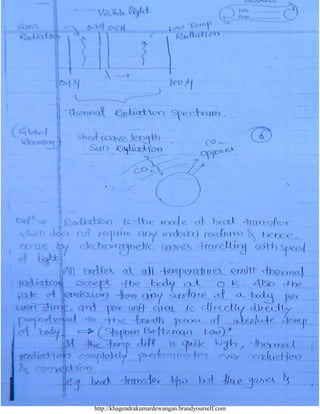 Visible light
Sun's
Radiation
Low Temp.
Radiation
0.1 μ
λ →
100 μ
Thermal Radiation Spectrum.
(Global
Warming)
Short wave length
Sun Radiation
CO₂
opposes
6
CO₂
Defⁿ ⇒ Radiation is the mode of heat transfer
which does not require any material medium & hence
occurs by electromagnetic waves travelling with speed
of light.
All bodies at all temperatures emitt thermal
radiation except the body at 0 K. Also the
rate of emission from any surface of a body per
unit time and per unit area is directly directly
proportional to the fourth power of absolute temp
of body. ⇒ (Stephen Boltzman Law)
If the temp. diff is quite high, thermal
radiation completely predominates over conduction
& convection.
e.g. heat transfer b/w hot flue gases &
http://khagendrakumardewangan.brandyourself.com